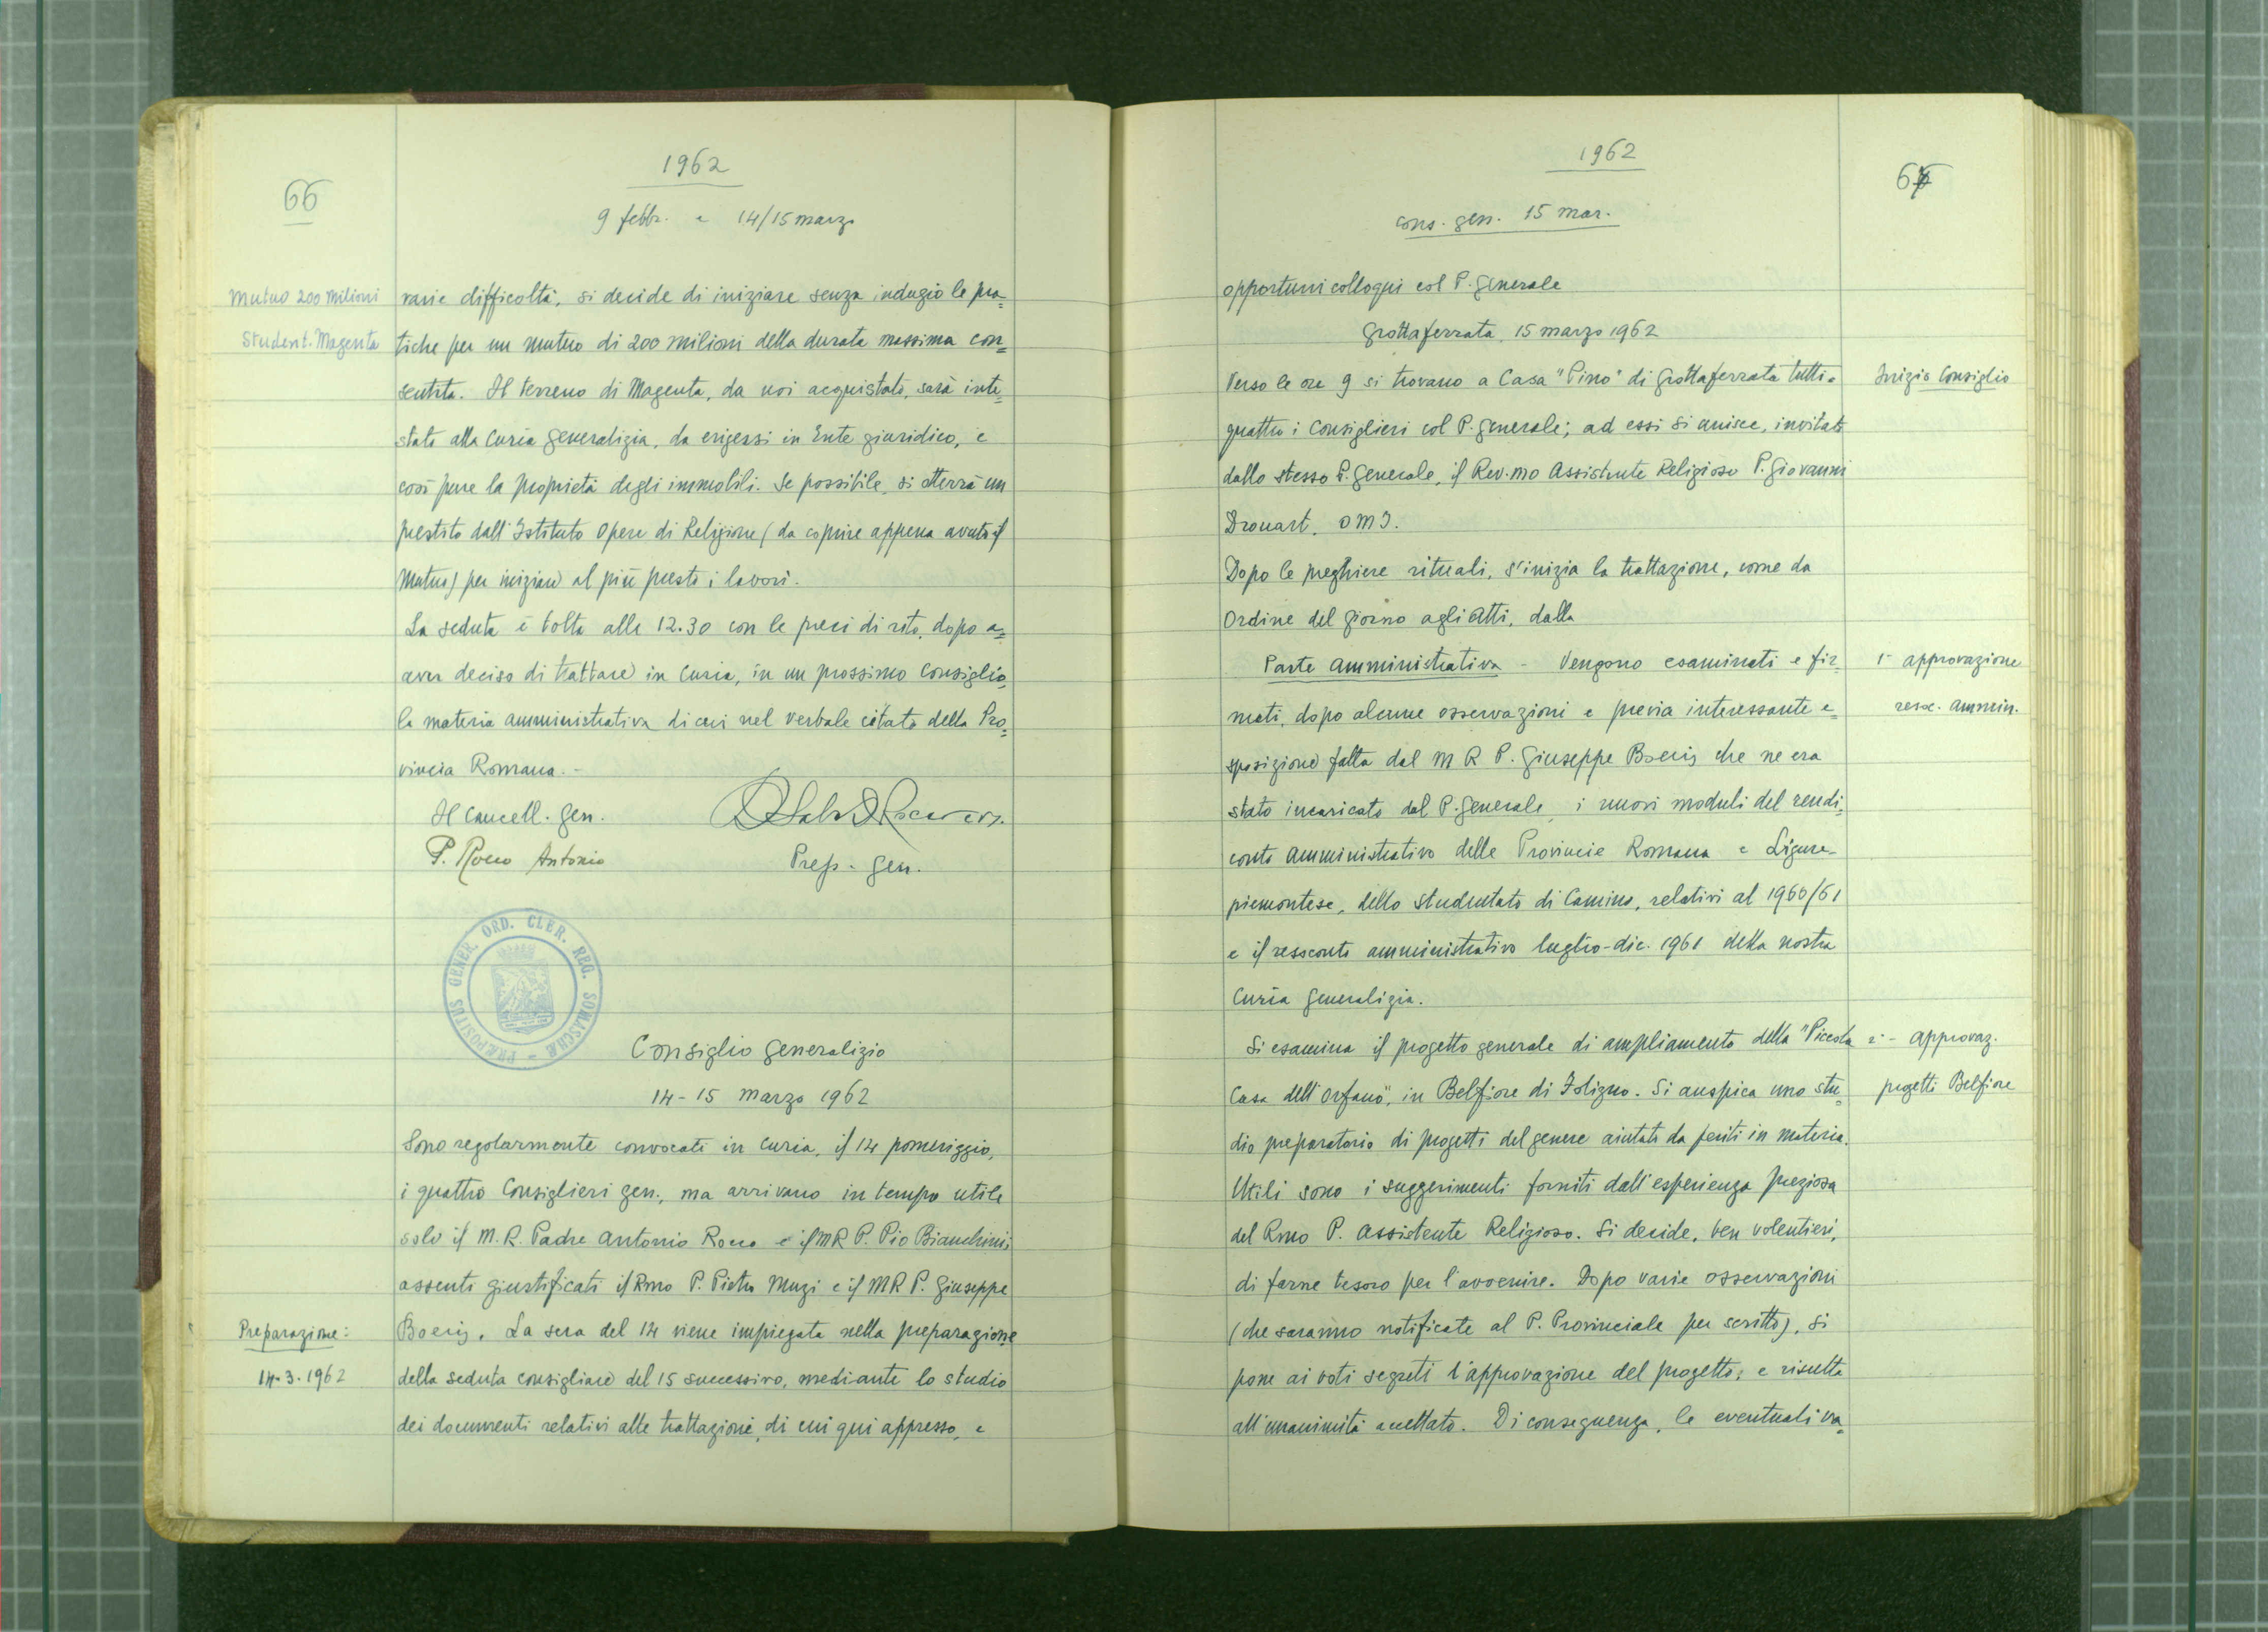 66
1962
9 febbr. e 14/15 marzo
Mutuo 200 milioni
Student. Magenta
varie difficoltà, si decide di iniziare senza indugio le pra=
tiche per un mutuo di 200 milioni della durata massima con=
sentita. Il terreno di Magenta, da noi acquistato, sarà inte=
stato alla Curia generalizia, da erigersi in Ente giuridico, e
così pure la proprietà degli immobili. Se possibile, si otterrà un
prestito dall'Istituto Opere di Religione (da coprire appena avuto il
Mutuo) per iniziare al più presto i lavori.
La seduta è tolta alle 12.30 con le preci di rito, dopo a=
aver deciso di trattare in Curia, in un prossimo Consiglio,
la materia amministrativa di cui nel verbale citato della Pro=
vincia Romana.-
Il Cancell. gen.
P. Rocco Antonio
Prep. gen.
PRÆPOSITUS GENER. ORD. CLER. REG. SOMASCHÆ
Consiglio generalizio
14-15 marzo 1962
Sono regolarmente convocati in Curia, il 14 pomeriggio,
i quattro Consiglieri gen., ma arrivano in tempo utile
solo il M.R. Padre Antonio Rocco e il MR P. Pio Bianchini;
assenti giustificati il Rmo P. Pietro Muzi e il MR P. Giuseppe
Preparazione:
14.3.1962
Boeris. La sera del 14 viene impiegata nella preparazione
della seduta consigliare del 15 successivo, mediante lo studio
dei documenti relativi alle trattazioni, di cui qui appresso, e
1962
67
cons. gen. 15 mar.
opportuni colloqui col P. generale
Grottaferrata, 15 marzo 1962
Verso le ore 9 si trovano a Casa "Pino" di Grottaferrata tutti e
Inizio Consiglio
quattro i Consiglieri col P. generale; ad essi si unisce, invitato
dallo stesso P. generale, il Rev.mo Assistente Religioso P. Giovanni
Drouart, OMI.
Dopo le preghiere rituali, s'inizia la trattazione, come da
Ordine del giorno agli Atti, dalla
Parte amministrativa - Vengono esaminati e fir=
mati, dopo alcune osservazioni e previa interessante e=
1- approvazione
resoc. ammin.
sposizione fatta dal M R P. Giuseppe Boeris che ne era
stato incaricato dal P. generale, i nuovi moduli del rendi=
conto amministrativo delle Provincie Romana e Ligure-
piemontese, dello studentato di Camino, relativi al 1960/61
e il resoconto amministrativo luglio-dic. 1961 della nostra
Curia generalizia.
Si esamina il progetto generale di ampliamento della "Piccola
Casa dell'Orfano", in Belfiore di Foligno. Si auspica uno stu=
2- approvaz.
progetti Belfiore
dio preparatorio di progetti del genere aiutati da periti in materia.
Utili sono i suggerimenti forniti dall'esperienza preziosa
del Rmo P. Assistente Religioso. Si decide, ben volentieri,
di farne tesoro per l'avvenire. Dopo varie osservazioni
(che saranno notificate al P. Provinciale per scritto), si
pone ai voti segreti l'approvazione del progetto; e risulta
all'unanimità accettato. Di conseguenza, le eventuali va=